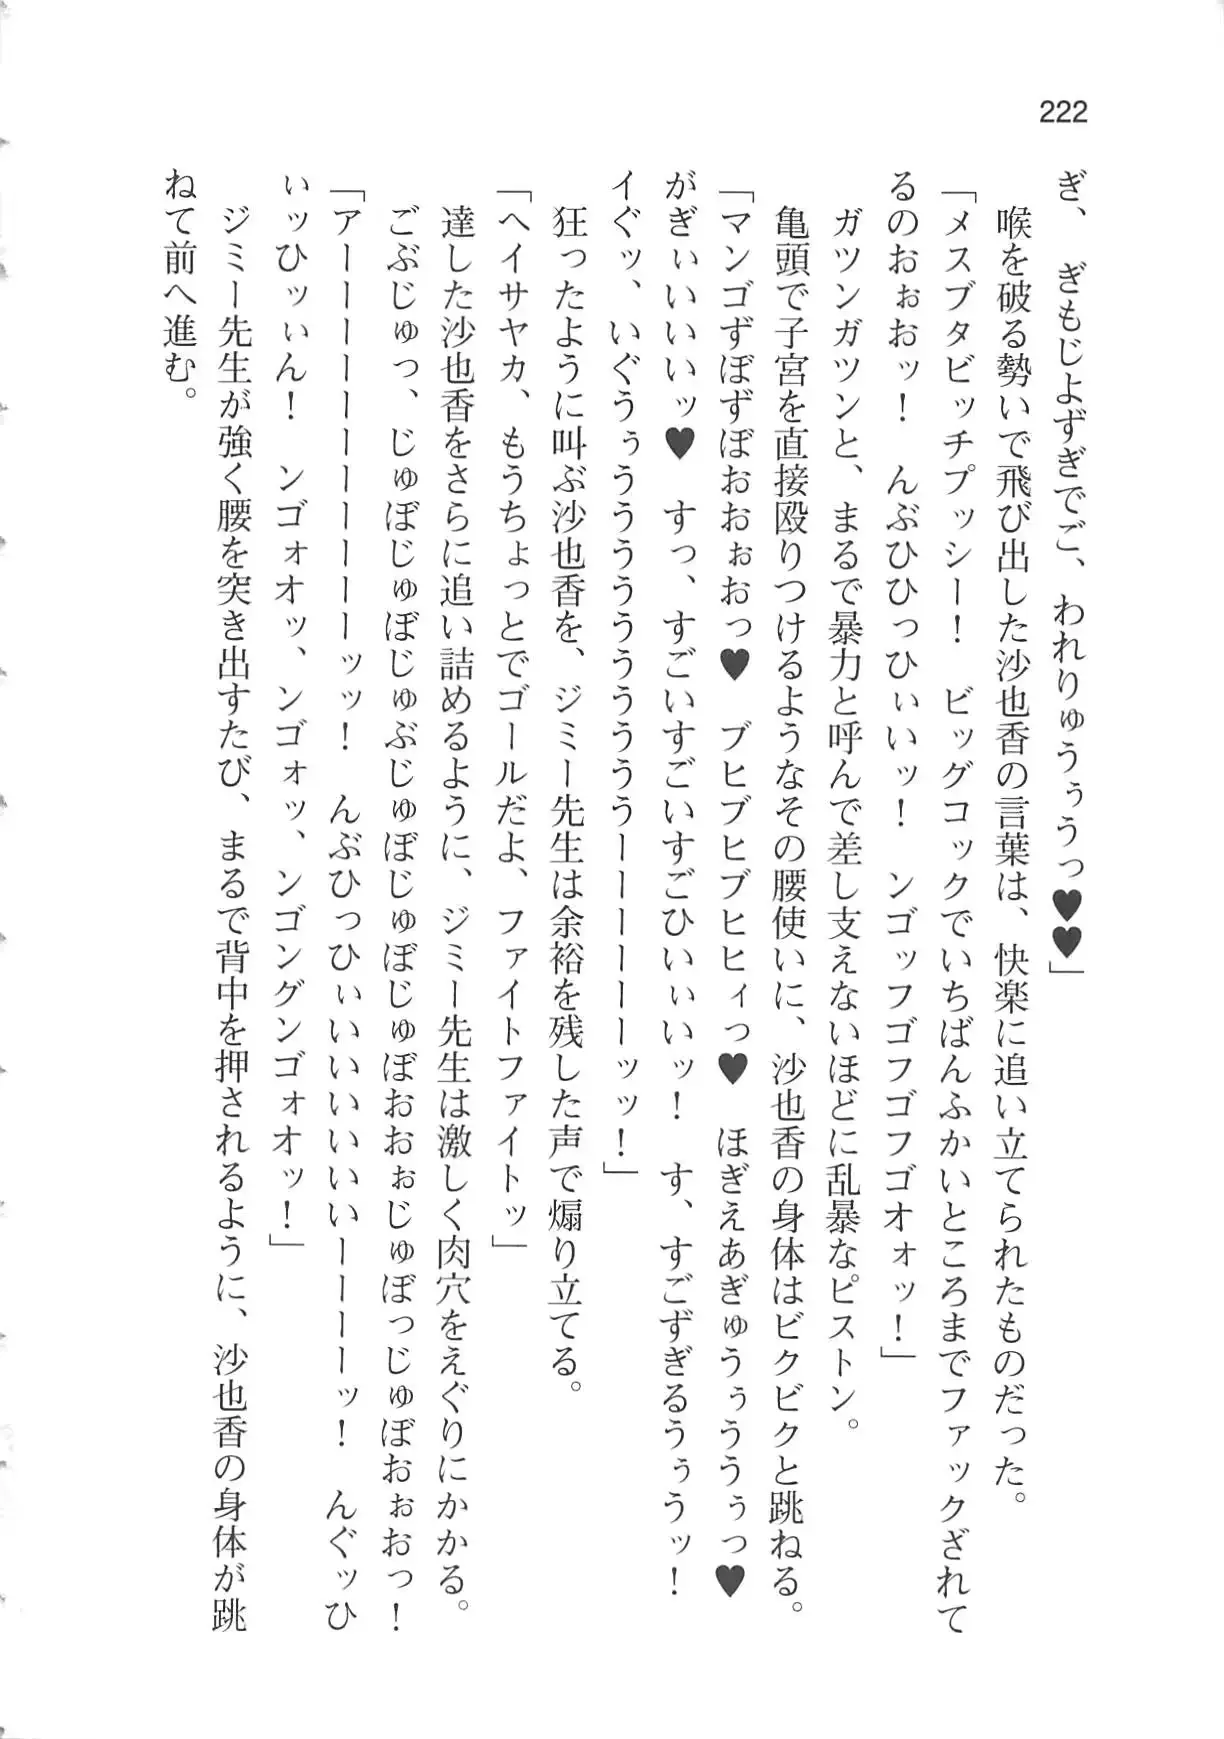 222
ぎ、ぎもじよずぎでご、われりゅうぅうっ♥♥」
喉を破る勢いで飛び出した沙也香の言葉は、快楽に追い立てられたものだった。
「メスブタビッチプッシー！　ビッグコックでいちばんふかいところまでファックざれて
るのおぉおッ！　んぶひひっひぃいッ！　ンゴッフゴフゴフゴオォッ！」
ガツンガツンと、まるで暴力と呼んで差し支えないほどに乱暴なピストン。
亀頭で子宮を直接殴りつけるようなその腰使いに、沙也香の身体はビクビクと跳ねる。
「マンゴずぼずぼおおぉおっ♥　ブヒブヒブヒヒィっ♥　ほぎえあぎゅうぅううぅっ♥
がぎぃいいいッ♥　すっ、すごいすごいすごひいぃいッ！　す、すごずぎるうぅうッ！
イぐッ、いぐうぅうううううううーーーーーッッ！」
狂ったように叫ぶ沙也香を、ジミー先生は余裕を残した声で煽り立てる。
「ヘイサヤカ、もうちょっとでゴールだよ、ファイトファイトッ」
達した沙也香をさらに追い詰めるように、ジミー先生は激しく肉穴をえぐりにかかる。
ごぶじゅっ、じゅぼじゅぼじゅぶじゅぼじゅぼじゅぼおおぉじゅぼっじゅぼおぉおっ！
「アーーーーーーーーーーッッ！　んぶひっひぃいいいいいいーーーーッ！　んぐッひ
ぃッひッぃん！　ンゴォオッ、ンゴォッ、ンゴングンゴォオッ！」
ジミー先生が強く腰を突き出すたび、まるで背中を押されるように、沙也香の身体が跳
ねて前へ進む。